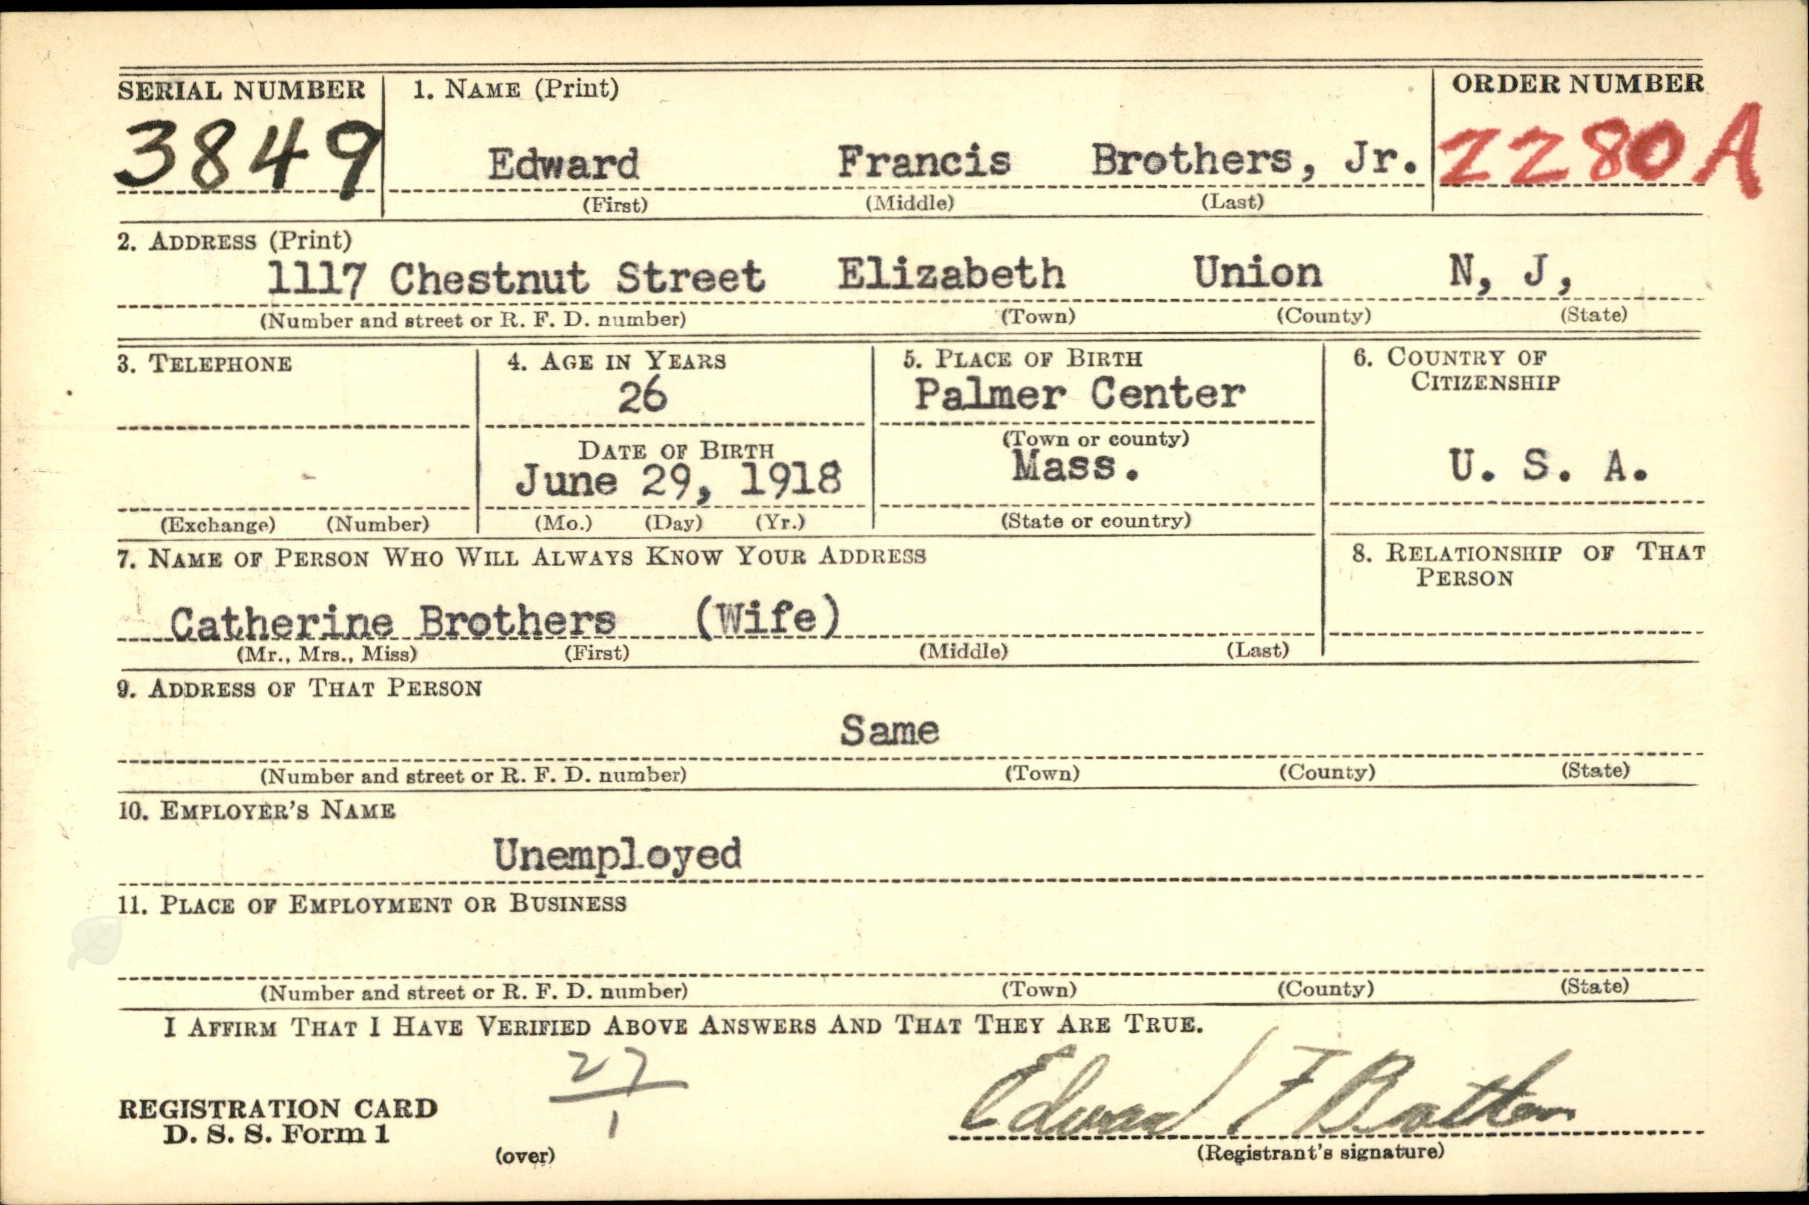 SERIAL NUMBER 1. NAME (Print) ORDER NUMBER
3849 Edward Francis Brothers, Jr. 2280A
(First) (Middle) (Last)
2. ADDRESS (Print)
1117 Chestnut Street Elizabeth Union N, J,
(Number and street or R. F. D. number) (Town) (County) (State)
3. TELEPHONE 4. AGE IN YEARS 5. PLACE OF BIRTH 6. COUNTRY OF
CITIZENSHIP
26 Palmer Center
DATE OF BIRTH (Town or county)
June 29, 1918 Mass. U. S. A.
(Exchange) (Number) (Mo.) (Day) (Yr.) (State or country)
7. NAME OF PERSON WHO WILL ALWAYS KNOW YOUR ADDRESS 8. RELATIONSHIP OF THAT
PERSON
Catherine Brothers (Wife)
(Mr., Mrs., Miss) (First) (Middle) (Last)
9. ADDRESS OF THAT PERSON
Same
(Number and street or R. F. D. number) (Town) (County) (State)
10. EMPLOYER'S NAME
Unemployed
11. PLACE OF EMPLOYMENT OR BUSINESS
(Number and street or R. F. D. number) (Town) (County) (State)
I AFFIRM THAT I HAVE VERIFIED ABOVE ANSWERS AND THAT THEY ARE TRUE.
27
1
Edward F Brothers
REGISTRATION CARD
D. S. S. Form 1
(over) (Registrant's signature)